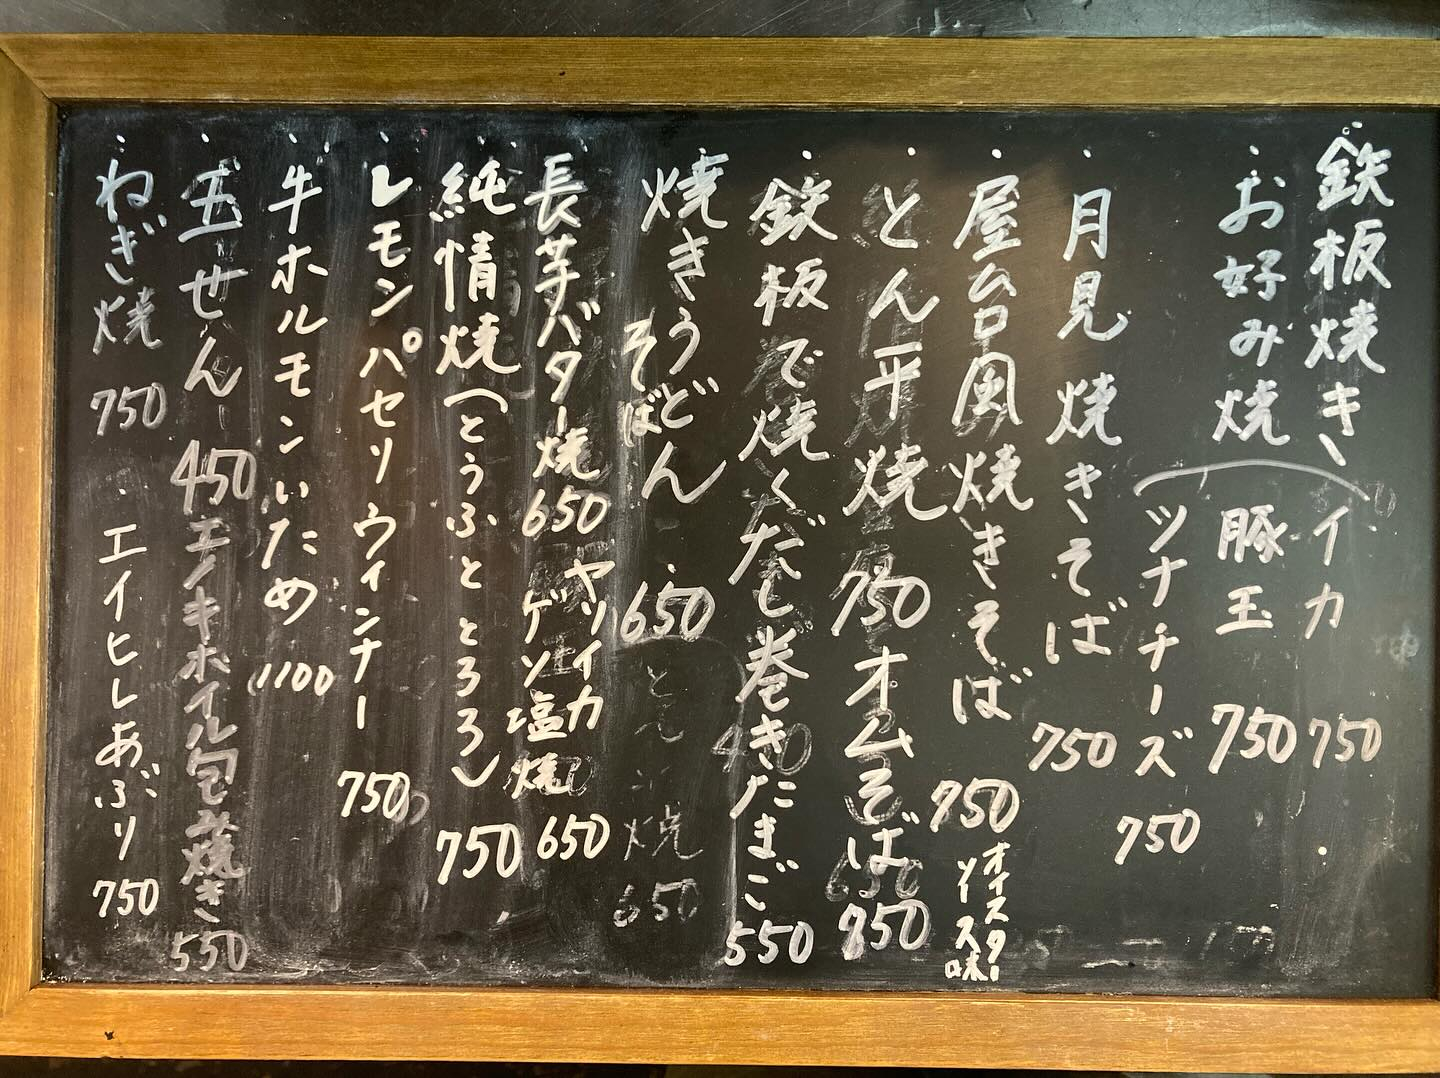 鉄板焼き
お好み焼
イカ 750
豚玉 750
ツナチーズ 750
月見焼きそば 750
屋台風焼きそば 750
オイスター
ソース味
とん平焼 750
オムそば 850
鉄板で焼くだし巻きたまご 550
焼きうどん 650
そばん
とん平焼 650
長芋バター焼 650
ヤリイカ
ゲソ塩焼 650
純情焼(とうふととろろ) 750
レモンパセリウィンナー 750
牛ホルモンいため 1100
玉せん 450
エノキホイル包み焼き 550
ねぎ焼 750
エイヒレあぶり 750